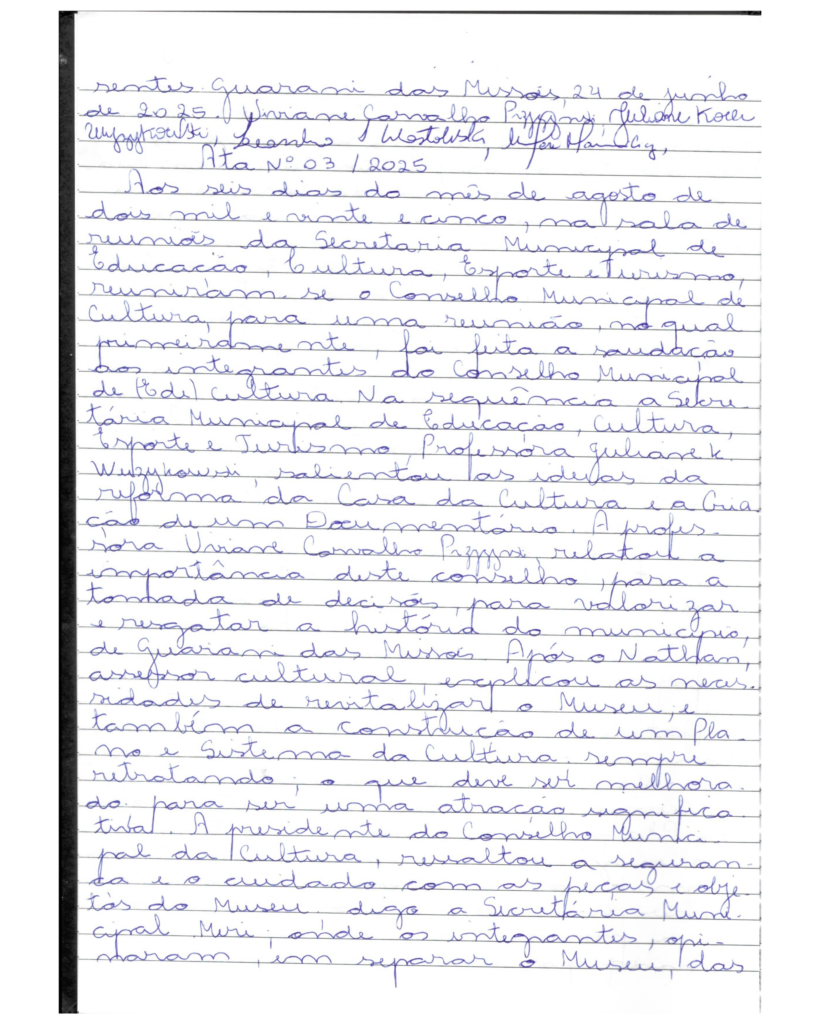 sentes. Guarani das Missões, 24 de junho
de 2025. Viviane Carvalho Juliane Koler
Leandro
Ata Nº 03 / 2025
Aos seis dias do mês de agosto de
dois mil e vinte e cinco, na sala de
reuniões da Secretaria Municipal de
Educação, Cultura, Esporte e Turismo,
reuniram-se o Conselho Municipal de
Cultura, para uma reunião, no qual
primeiramente, foi feita a saudação
aos integrantes do Conselho Municipal
de (Ede) Cultura. Na sequência a Secre-
tária Municipal de Educação, Cultura,
Esporte e Turismo, Professora Juliane K.
salientou as ideias da
reforma da Casa da Cultura e a Cria-
ção de um Documentário. A profes-
sora Viviane Carvalho relatou a
importância deste conselho, para a
tomada de decisões, para valorizar
e resgatar a história do município,
de Guarani das Missões. Após o Nathan,
assessor cultural, explicou as neces-
sidades de revitalizar o Museu, e
também a construção de um Pla-
no e Sistema da Cultura. sempre
retratando, o que deve ser melhora-
do para ser uma atração significa-
tiva. A presidente do Conselho Munici-
pal da Cultura, ressaltou a seguran-
ça e o cuidado com as peças e obje-
tos do Museu. digo a Secretária Muni-
cipal Meri, onde os integrantes, opi-
naram, em separar o Museu, das